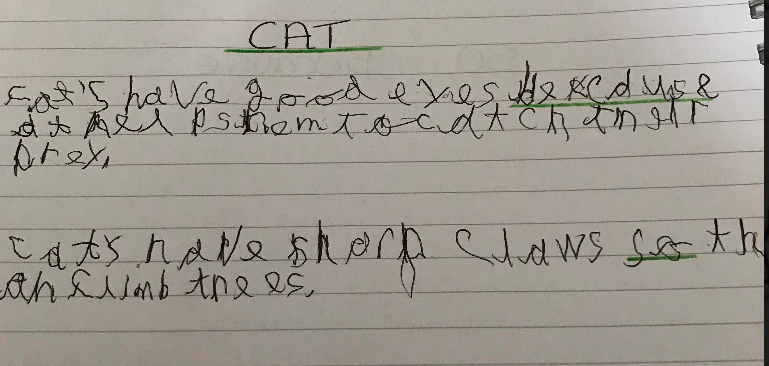 CAT
Cat's have good eyes because
it helps them to catch their
prey,
cats have sharp claws so th
an climb trees,